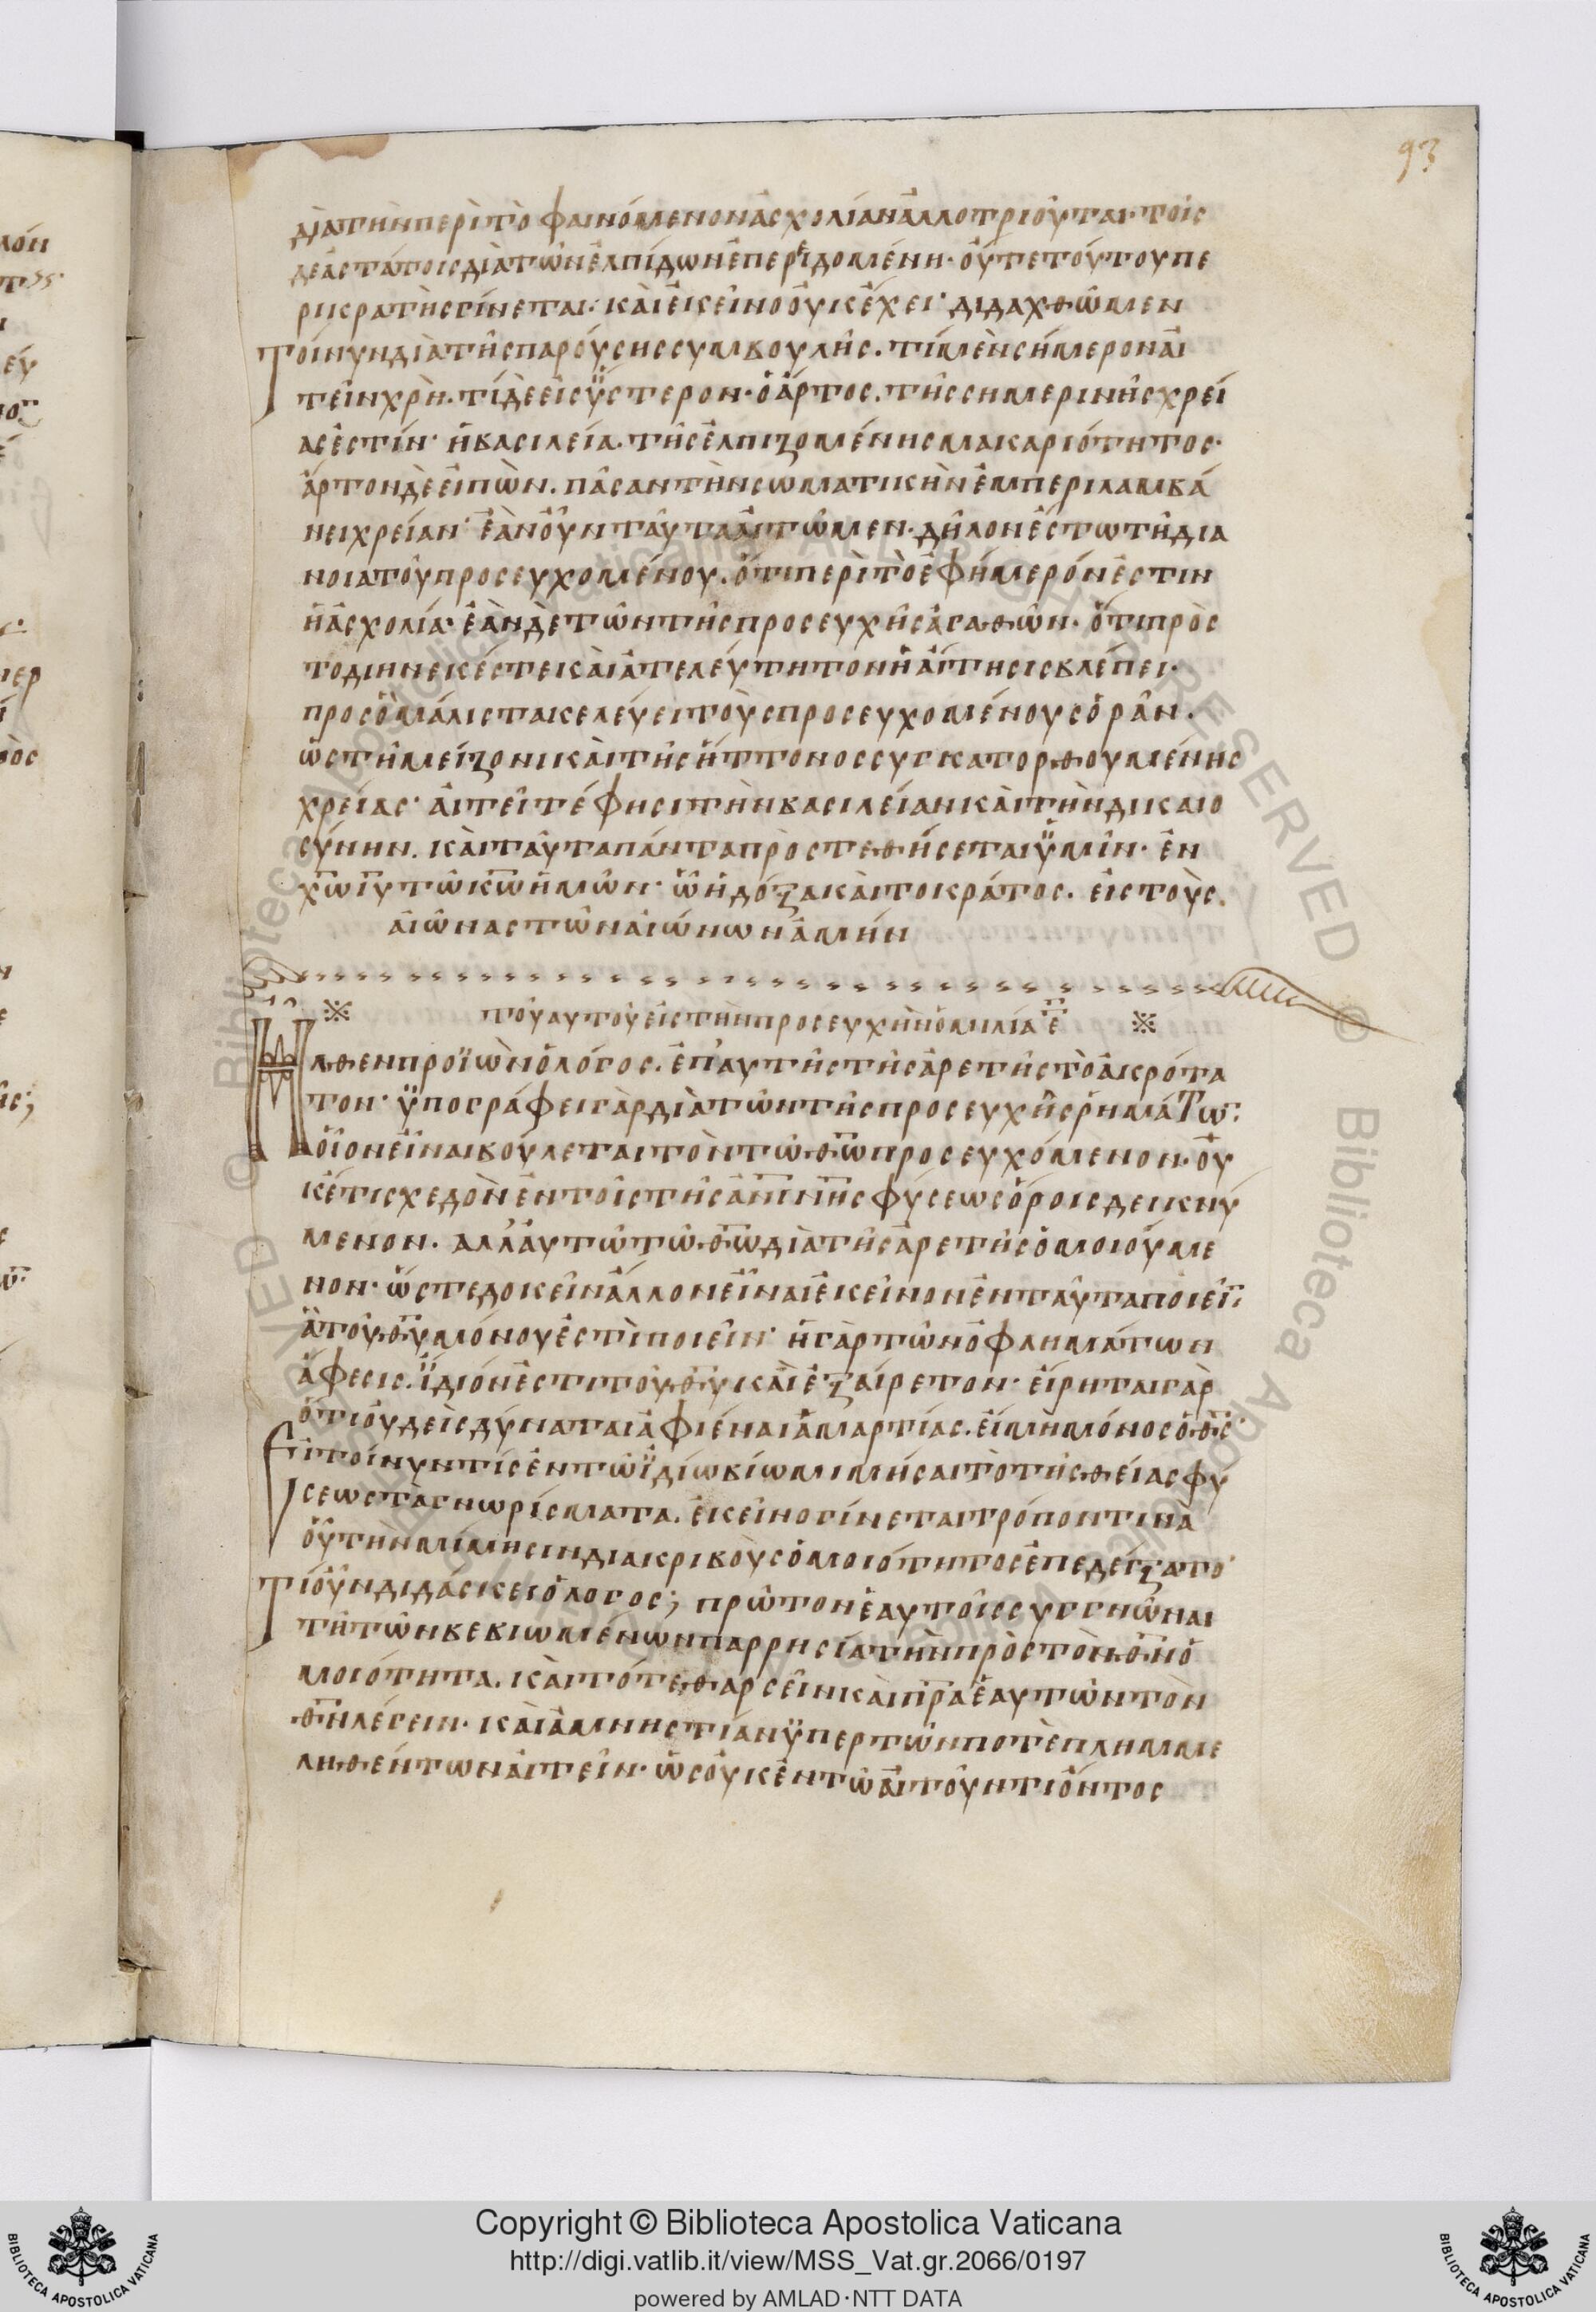 93
διὰ τὴν περὶ τὸ φαινόμενον ἀσχολίαν ἀλλοτριοῦται· τοῖς
δὲ ἀστάτοις διὰ τῶν ἐλπίδων ἐπερειδομένη· οὔτε τούτου πε
ρικρατὴς γίνεται· καὶ ἐκεῖνο οὐκ ἔχει· διδαχθῶμεν
τοίνυν διὰ τῆς παρούσης συμβουλῆς. τί μὲν σήμερον αἰ
τεῖν χρὴ. τί δὲ εἰς ὕστερον· ὁ ἄρτος. τῆς σημερινῆς χρεί
ας ἐστίν· ἡ βασιλεία. τῆς ἐλπιζομένης μακαριότητος·
ἄρτον δὲ εἰπὼν. πᾶσαν τὴν σωματικὴν ἐμπεριλαμβά
νει χρείαν· ἐὰν οὖν ταῦτα αἰτῶμεν. δῆλον ἔστω τῇ δια
νοία τοῦ προσευχομένου. ὅτι περὶ τὸ ἐφήμερόν ἐστιν
ἡ ἀσχολία· ἐὰν δὲ τῶν τῆς προσευχῆς ἀγαθῶν. ὅτι πρὸς
το διηνεκές τε καὶ ἀτελεύτητον ἡ αἴτησις βλέπει.
προς ὃ μάλιστα κελεύει τοὺς προσευχομένους ὁρᾶν.
ὡς τῇ μείζονι καὶ τῆς ἥττονος συγκατορθουμένης
χρείας· αἰτεῖτέ φησι τὴν βασιλείαν καὶ τὴν δικαιο
σύνην. καὶ ταῦτα πάντα προστεθήσεται ὑμῖν· ἐν
χω ιυ τῶ κω ἡμῶν· ὧ ἡ δόξα καὶ το κράτος. εἰς τοὺς
αἰῶνας τῶν αἰώνων ἀμήν
τοῦ αυτοῦ εἰς τὴν προσευχὴν ὁμιλία ε
Ἦλθεν προϊὼν ὁ λόγος. ἐπ' αυτῆς τῆς ἀρετῆς τὸ ἀκρότα
τον· ὑπογράφει γὰρ διὰ τῶν τῆς προσευχῆς ῥημάτω
οἷον εἶναι βούλεται τὸν τῶ θω προσευχόμενον· οὐ
κέτι σχεδὸν ἐν τοῖς τῆς ἀνίνης φύσεως ὅροις δεικνύ
μενον. αλλ' αυτῶ τῶ θω διὰ τῆς ἀρετῆς ὁμοιούμε
νον· ὥστε δοκεῖν ἄλλον εἶναι ἐκεῖνον ἐν τ' αῦτα ποιεῖ
ἃ τοῦ θυ μόνου ἐστὶ ποιεῖν· ἡ γὰρ τῶν ὀφλημάτων
ἄφεσις. ἴδιόν ἐστι τοῦ θυ καὶ ἐξαίρετον· εἴρηται γὰρ
ὅτι οὐδεὶς δύναται ἀφιέναι ἁμαρτίας. εἰ μὴ μόνος ὁ θς·
Εἰ τοίνυν τίς ἐν τῶ ἰδίω βίω μιμήσαιτο τῆς θείας φύ
σεως τὰ γνωρίσματα. ἐκεῖνο γίνεται τρόπον τινα
οὗ τὴν μίμησιν δι' ακριβοὺς ὁμοιότητος ἐπεδείξατο·
Τί οὖν διδάσκει ὁ λογος; πρῶτον ἑαυτοῖς συγγνῶναι
τῆ τῶν βεβιωμένων παρρησία τὴν πρὸς τὸν θν ὁ
μοιότητα. καὶ τότε θαρσεῖν καὶ πρα ἑαυτῶν τὸν
θν λέγειν· καὶ ἀμνηστίαν ὑπερ τῶν ποτὲ πλημμε
ληθέντων αἰτεῖν· ὡς οὐκ ἐν τῶ αἰτοῦντι ὄντος
Copyright © Biblioteca Apostolica Vaticana
http://digi.vatlib.it/view/MSS_Vat.gr.2066/0197
powered by AMLAD·NTT DATA
BIBLIOTECA APOSTOLICA VATICANA
BIBLIOTECA APOSTOLICA VATICANA